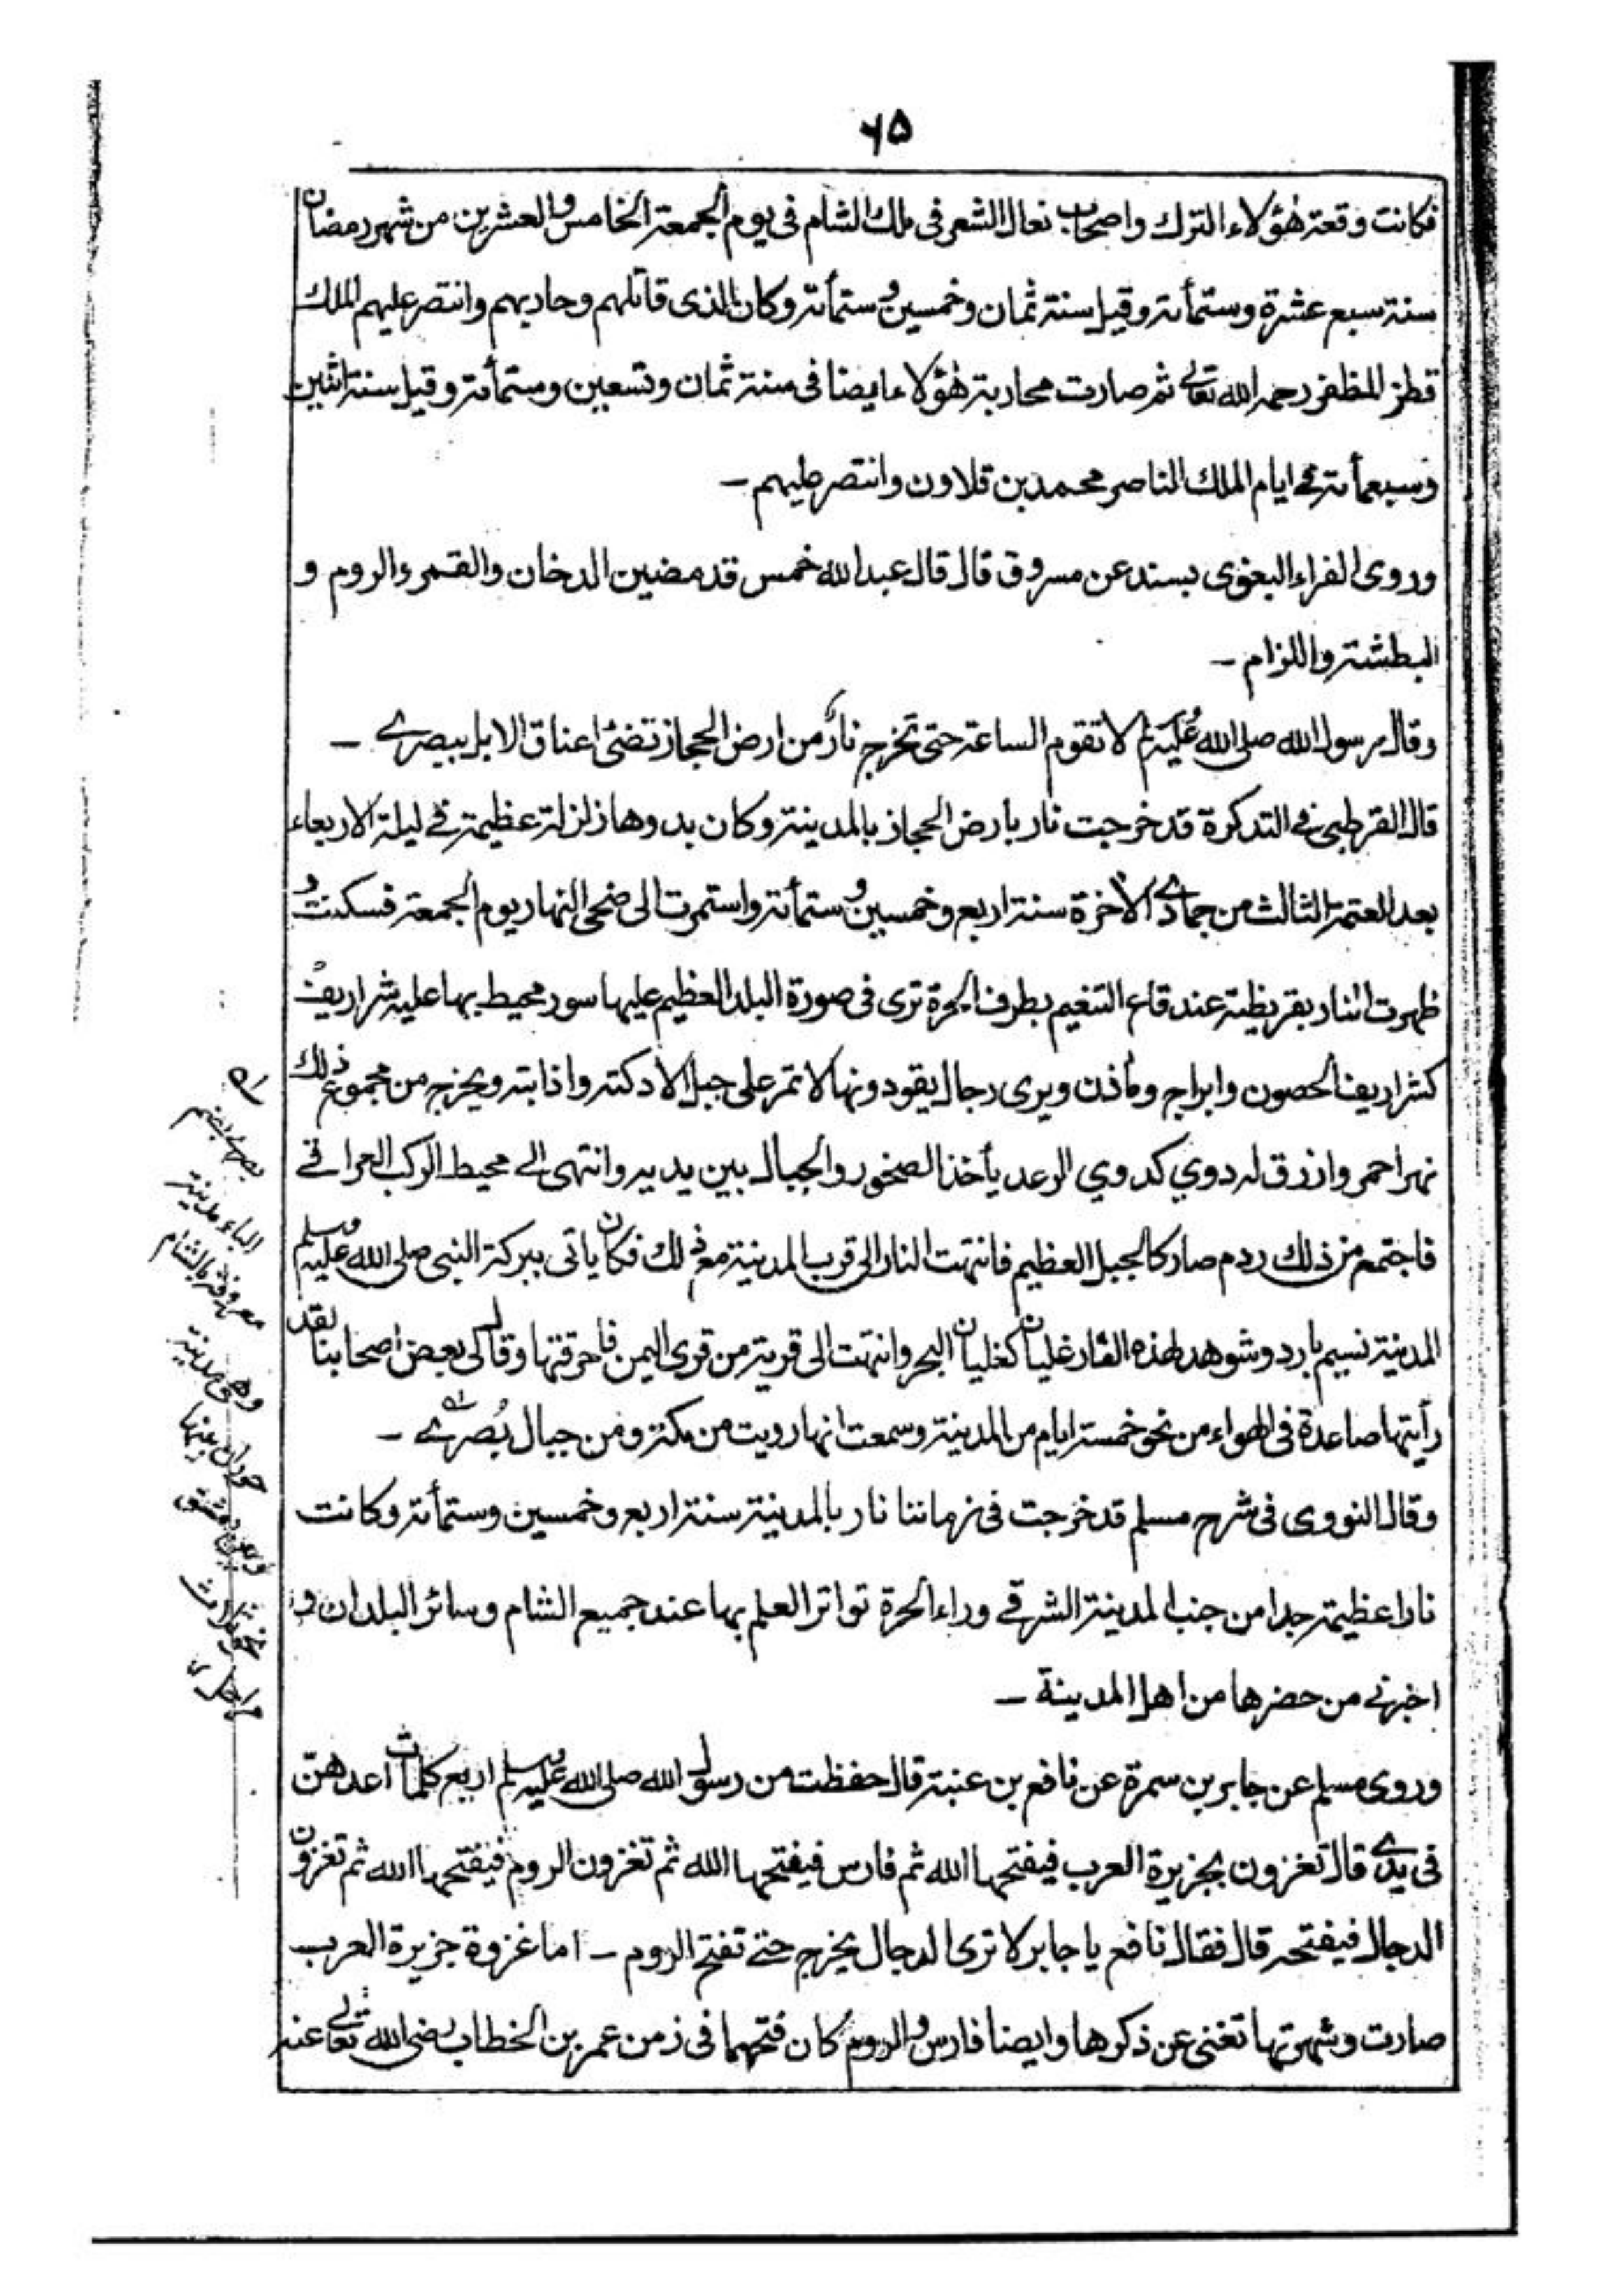 ۶۵
فكانت وقعة هؤلاء الترك واصحاب نعال الشعر فى ملك الشام فى يوم الجمعة الخامس والعشرين من شهر رمضان
سنة سبع عشرة وستمأة وقيل سنة ثمان وخمسين وستمأة وكان الذى قاتلهم وحاربهم وانتصر عليهم الملك
قطز المظفر رحمه الله تعالى ثم صارت محاربة هؤلاء ايضا فى سنة ثمان وتسعين وستمأة وقيل سنة اثنين
وسبعمأة فى ايام الملك الناصر محمد بن قلاون وانتصر عليهم ـ
وروى الفراء البغوى بسند عن مسروق قال قال عبد الله خمس قد مضين الدخان والقمر والروم و
البطشة واللزام ـ
وقال رسول الله صلى الله عليه وسلم لا تقوم الساعة حتى تخرج نار من ارض الحجاز تضئ اعناق الابل ببصرے ـ
قال القرطبى فے التذكرة قد خرجت نار بارض الحجاز بالمدينة وكان بدوها زلزلة عظيمة فے ليلة الاربعاء
بعد العتمة الثالث من جمادے الاخرة سنة اربع وخمسين وستمأة واستمرت الى ضحى النهار يوم الجمعة فسكنت و
ظهرت النار بقريظة عند قاع التنغيم بطرف الحرة ترى فى صورة البلد العظيم عليها سور محيط بها عليه شراريف
كشراريف الحصون وابراج ومأذن ويرى رجال يقودونها لا تمر على جبل الا دكته واذابته ويخرج من مجموع ذلك
نهر احمر وازرق له دوي كدوي الرعد يأخذ الصخور والجبال بين يديه وانتهى الے محيط الركب العراقے
فاجتمع من ذلك ردم صار كالجبل العظيم فانتهت النار الى قرب المدينة مع ذلك فكان ياتى ببركة النبى صلى الله عليه وسلم
المدينة نسيم بارد وشوهد لهذه النار غليان كغليان البحر وانتهت الى قرية من قرى اليمن فاحرقتها وقال لى بعض اصحابنا لقد
رأيتها صاعدة فى الهواء من نحو خمسة ايام من المدينة وسمعت انها رويت من مكة ومن جبال بُصرٰے ـ
وقال النووى فى شرح مسلم قد خرجت فى زماننا نار بالمدينة سنة اربع وخمسين وستمأة وكانت
نارا عظيمة جدا من جنب المدينة الشرقے وراء الحرة تواتر العلم بها عند جميع الشام وسائر البلدان و
اخبرنے من حضرها من اهل المدينة ـ
وروى مسلم عن جابر بن سمرة عن نافع بن عنبة قال حفظت من رسول الله صلى الله عليه وسلم اربع كلمات اعدهنّ
فى يدے قال تغزون بجزيرة العرب فيفتحها الله ثم فارس فيفتحها الله ثم تغزون الروم فيفتحها الله ثم تغزون
الدجال فيفتحه قال فقال نافع يا جابر لا ترى الدجال يخرج حتے تفتح الروم ـ اما غزوة جزيرة العرب
صارت وشهرتها تغنى عن ذكرها وايضا فارس والروم كان فتحهما فى زمن عمر بن الخطاب رضى الله تعالى عنه
بصرى بضم
الباء مدينة
معروفة بالشام
وهى مدينة
حوران بينها
وبين دمشق
نحو ثلاث
مراحل